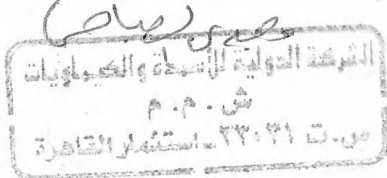 الشركة الدولية للأسمدة والكيماويات
ش . م . م
س. ت ٢٣٠٣١ - استثمار القاهرة